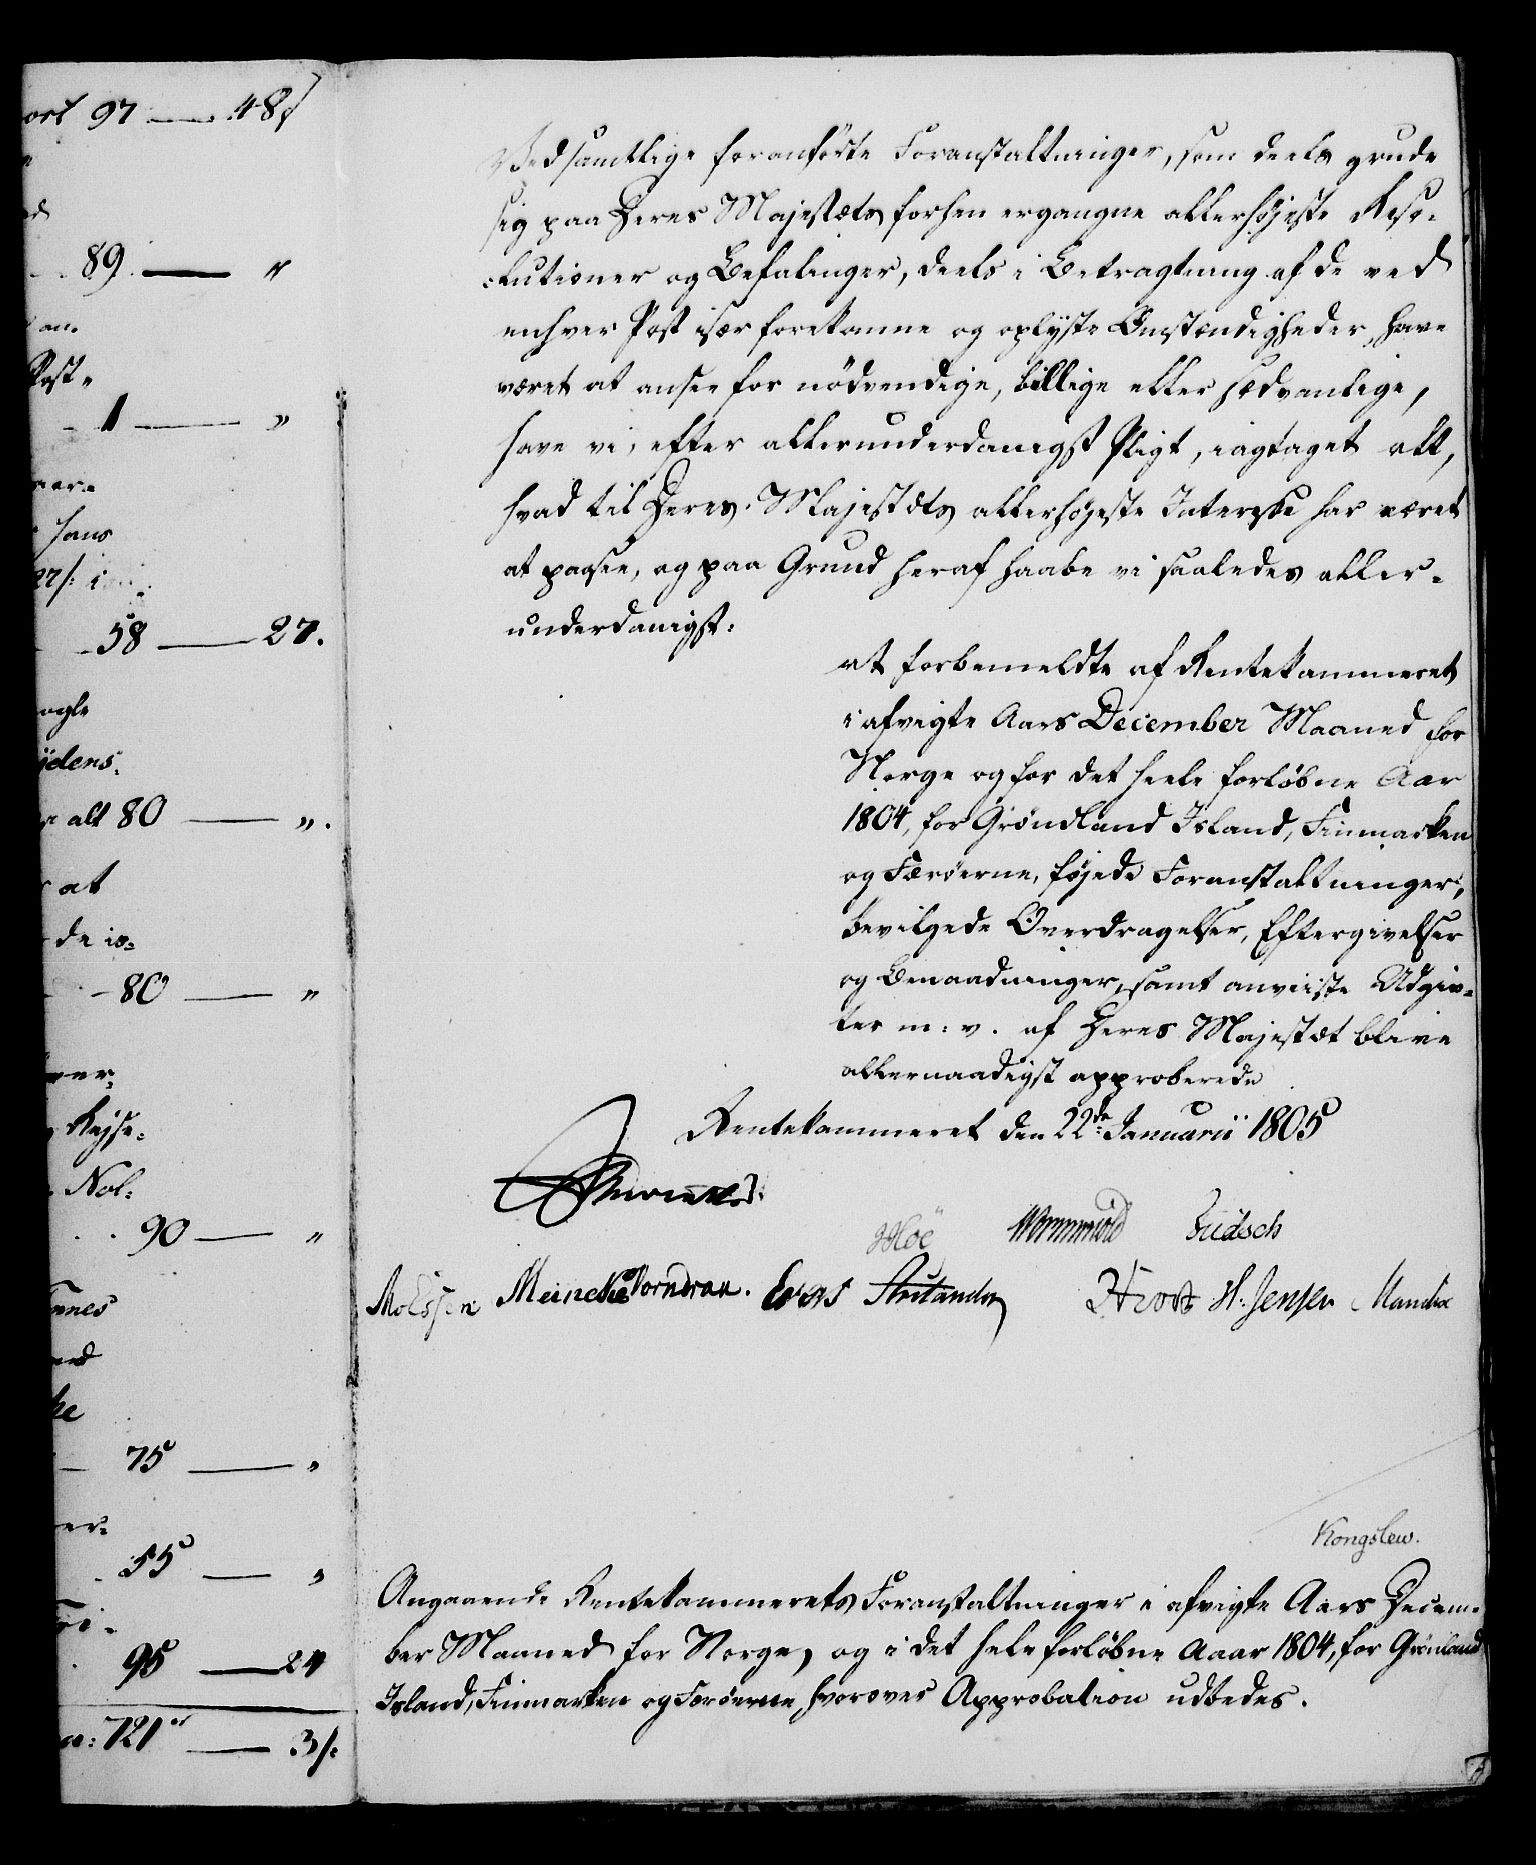 ort 97 — 48 ſ
89. — "
an.
Post"
1 — "
hans
27 ſ:
58 — 27.
ogle
ÿdens.
alt 80 — ".
at
de is=
80 — "
ver,
Rejse=
Nol:
90 — "
nnes
75 — "
er=
55 — "
95 — 24
721 rd — 3 ſ:
Ved samtlige foranførte Foranstaltninger, som deels grunde
sig paa Deres Majestæts forhen ergangne allerhøjeste Reso-
lutioner og Befalinger, deels i Betragtning af de ved
enhver Post især forekomne og oplyste Omstændigheder, have
været at ansee for nödvendige, billige eller sædvanlige,
have vi, efter allerunderdanigst Pligt, iagtaget alt,
hvad til Deres Majestæts allerhøjeste Interesse har været
at paasee, og paa Grund heraf haabe vi saaledes aller-
underdanigst:
at forbemeldte af Rentekammeret
i afvigte Aars December Maaned for
Norge og for det heele forløbne Aar
1804, for Grøndland Island, Finmarken
og Færöerne, føjede Foranstaltninger,
bevilgede Overdragelser, Eftergivelser
og Benaadninger, samt anviiste Udgiv-
ter m: v. af Deres Majestæt blive
allernaadigst approberede
Rentekammeret den 22de Januarii 1805
Hoë Wormskiold Lüdsch
Molssen Meincke Vorndran. Evers Stutander Frost H. Jensen Mandix
Kongslew.
Angaaende Rentekammerets Foranstaltninger i afvigte Aars Decem-
ber Maaned for Norge, og i det hele forløbne Aaar 1804, for Grønland
Island, Finmarken og Færöerne, hvorover Approbation udbedes.